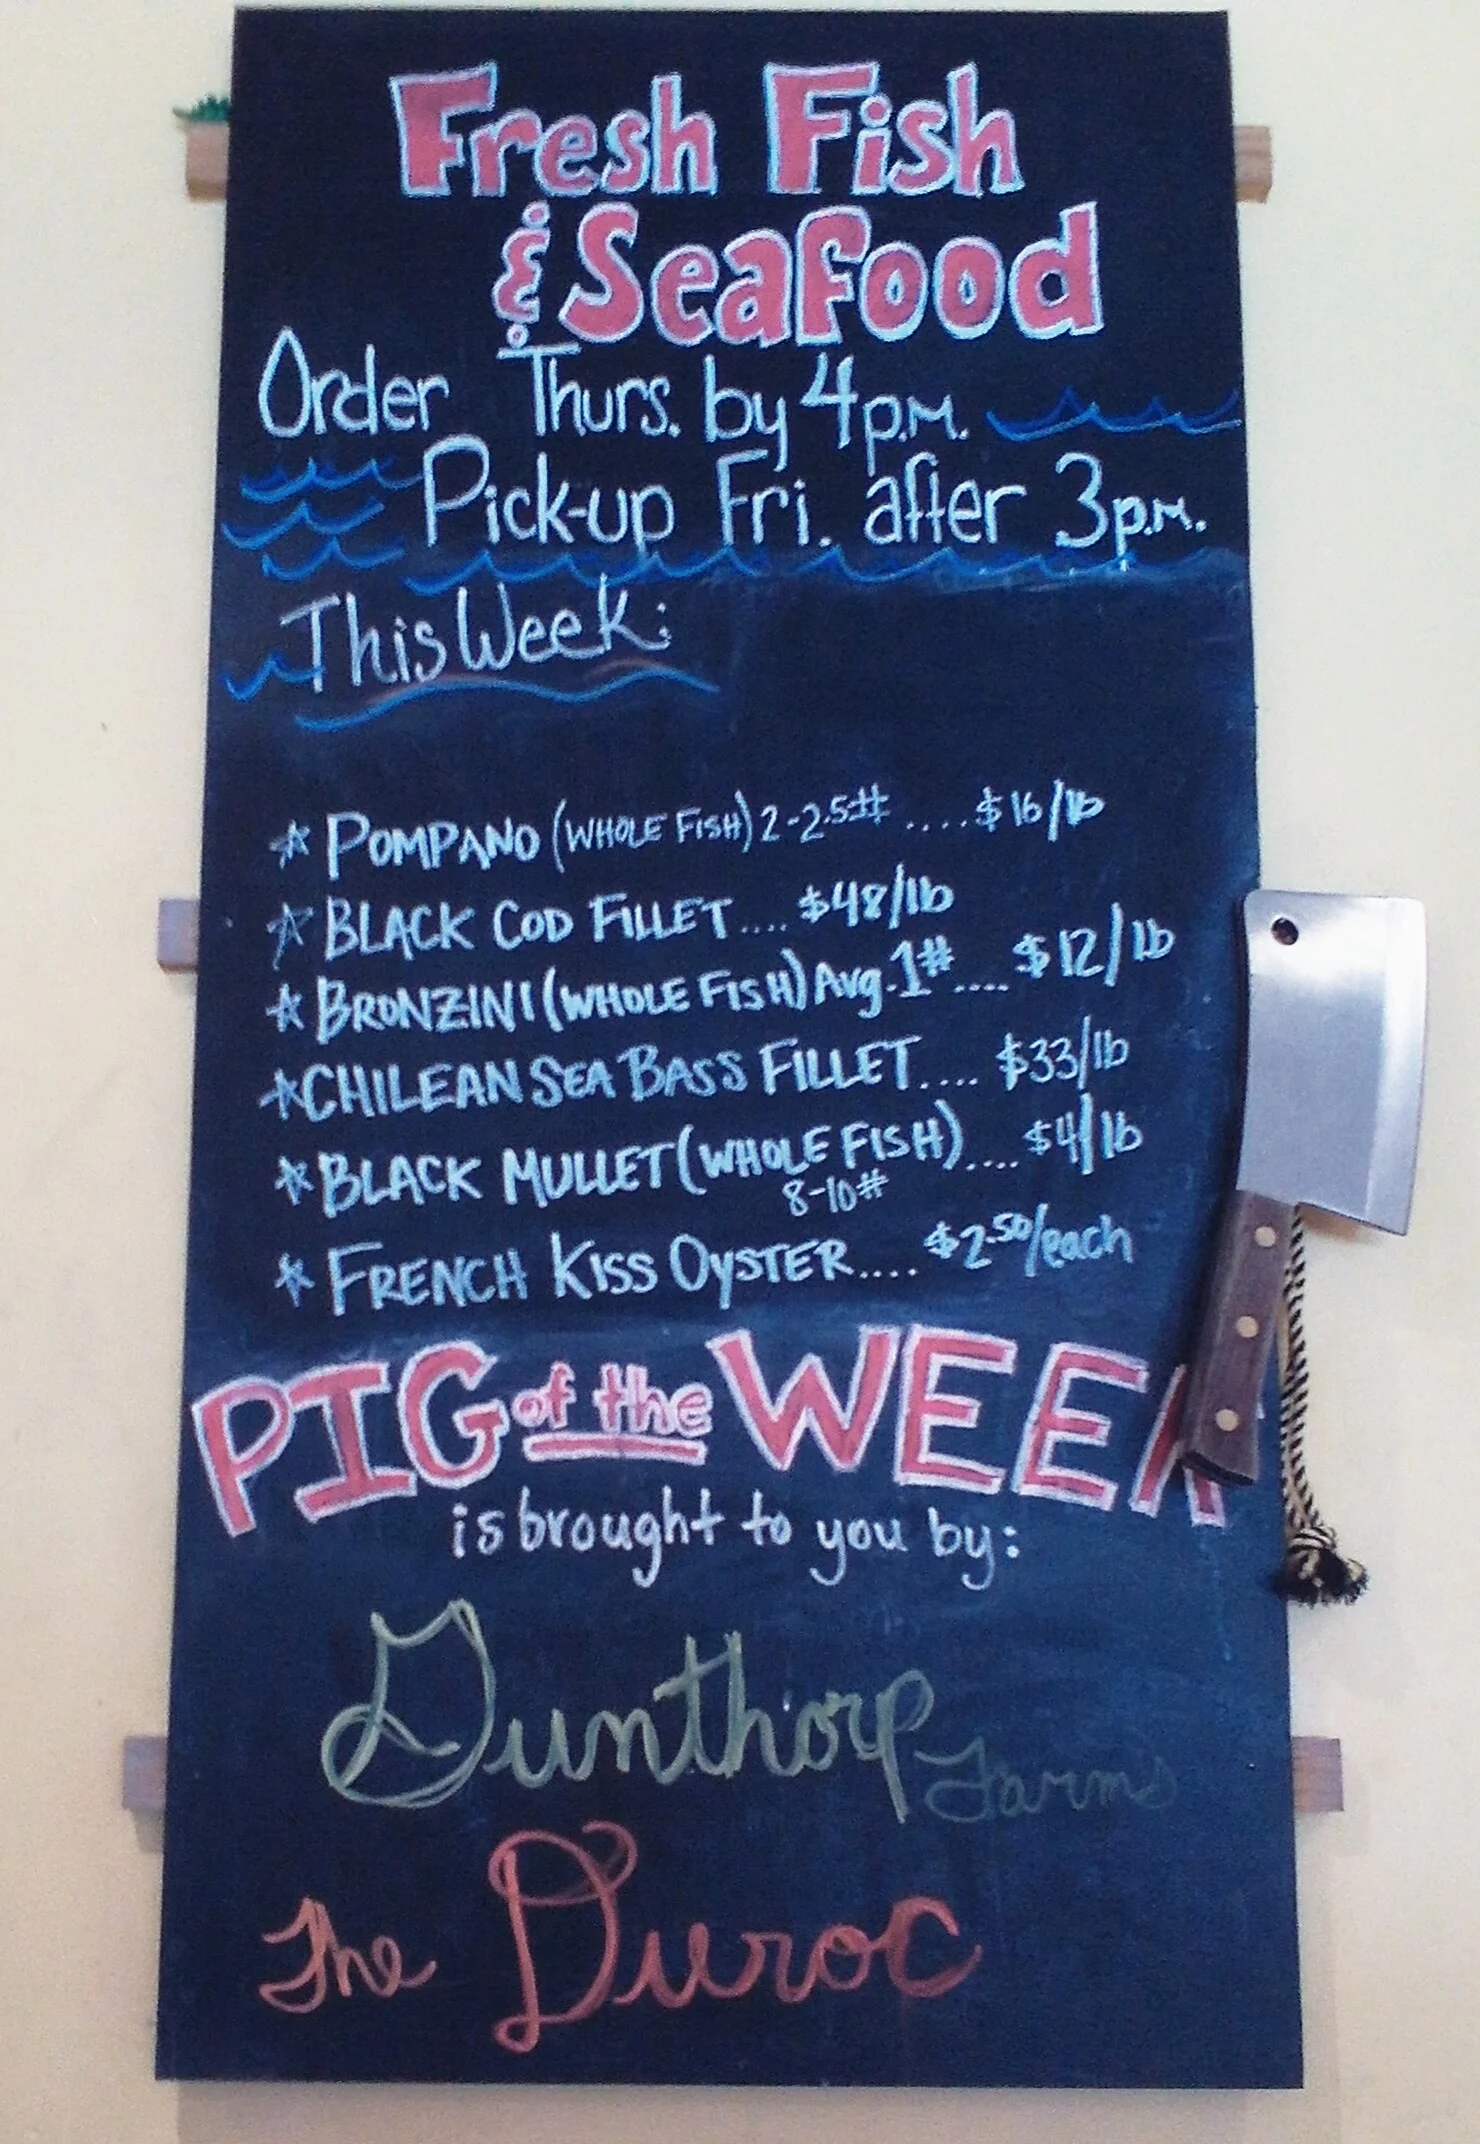 Fresh Fish
& Seafood
Order Thurs. by 4p.m.
Pick-up Fri. after 3p.m.
This Week:
POMPANO (WHOLE FISH) 2-2.5# ....$16/lb
BLACK COD FILLET.... $48/lb
BRONZINI (WHOLE FISH) Avg. 1# .... $12/lb
CHILEAN SEA BASS FILLET.... $33/lb
BLACK MULLET (WHOLE FISH).... $4/lb
8-10#
FRENCH KISS OYSTER.... $2.50/each
PIG of the WEEK
is brought to you by:
Gunthorp Farms
The Duroc